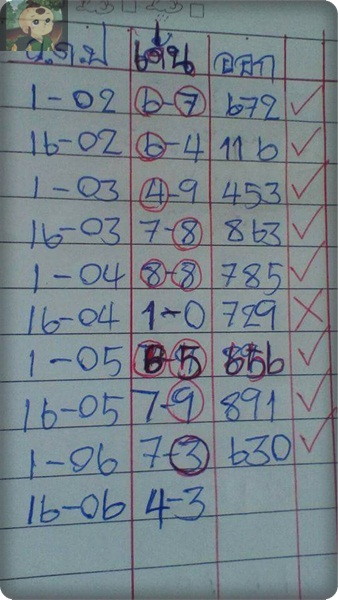 ว.ด.ป เด่น ออก
1-02 6-7 672 ✓
16-02 6-4 116 ✓
1-03 4-9 453 ✓
16-03 7-8 863 ✓
1-04 8-8 785 ✓
16-04 1-0 729 ✗
1-05 6-5 656 ✓
16-05 7-9 891 ✓
1-06 7-3 630 ✓
16-06 4-3